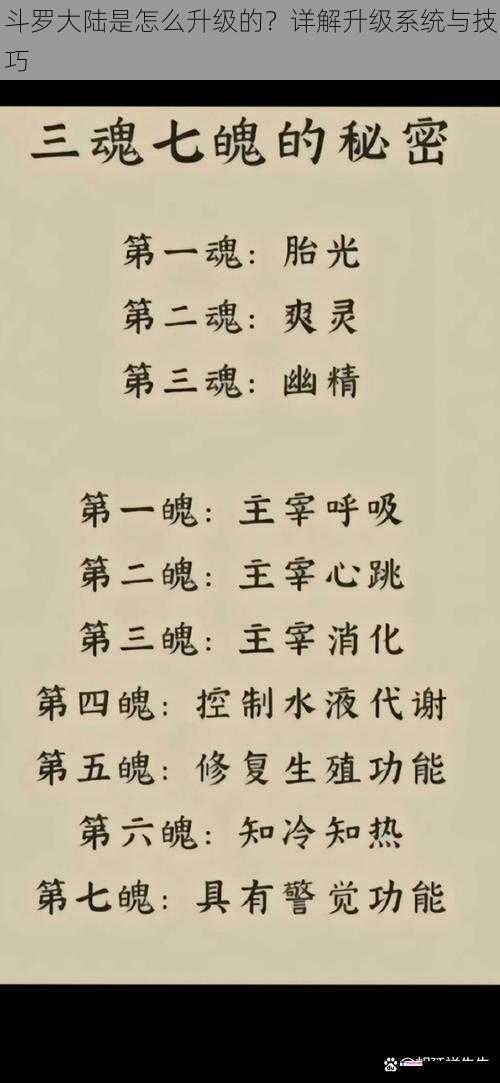 斗罗大陆是怎么升级的？详解升级系统与技
巧
三魂七魄的秘密
第一魂：胎光
第二魂：爽灵
第三魂：幽精
第一魄：主宰呼吸
第二魄：主宰心跳
第三魄：主宰消化
第四魄：控制水液代谢
第五魄：修复生殖功能
第六魄：知冷知热
第七魄：具有警觉功能